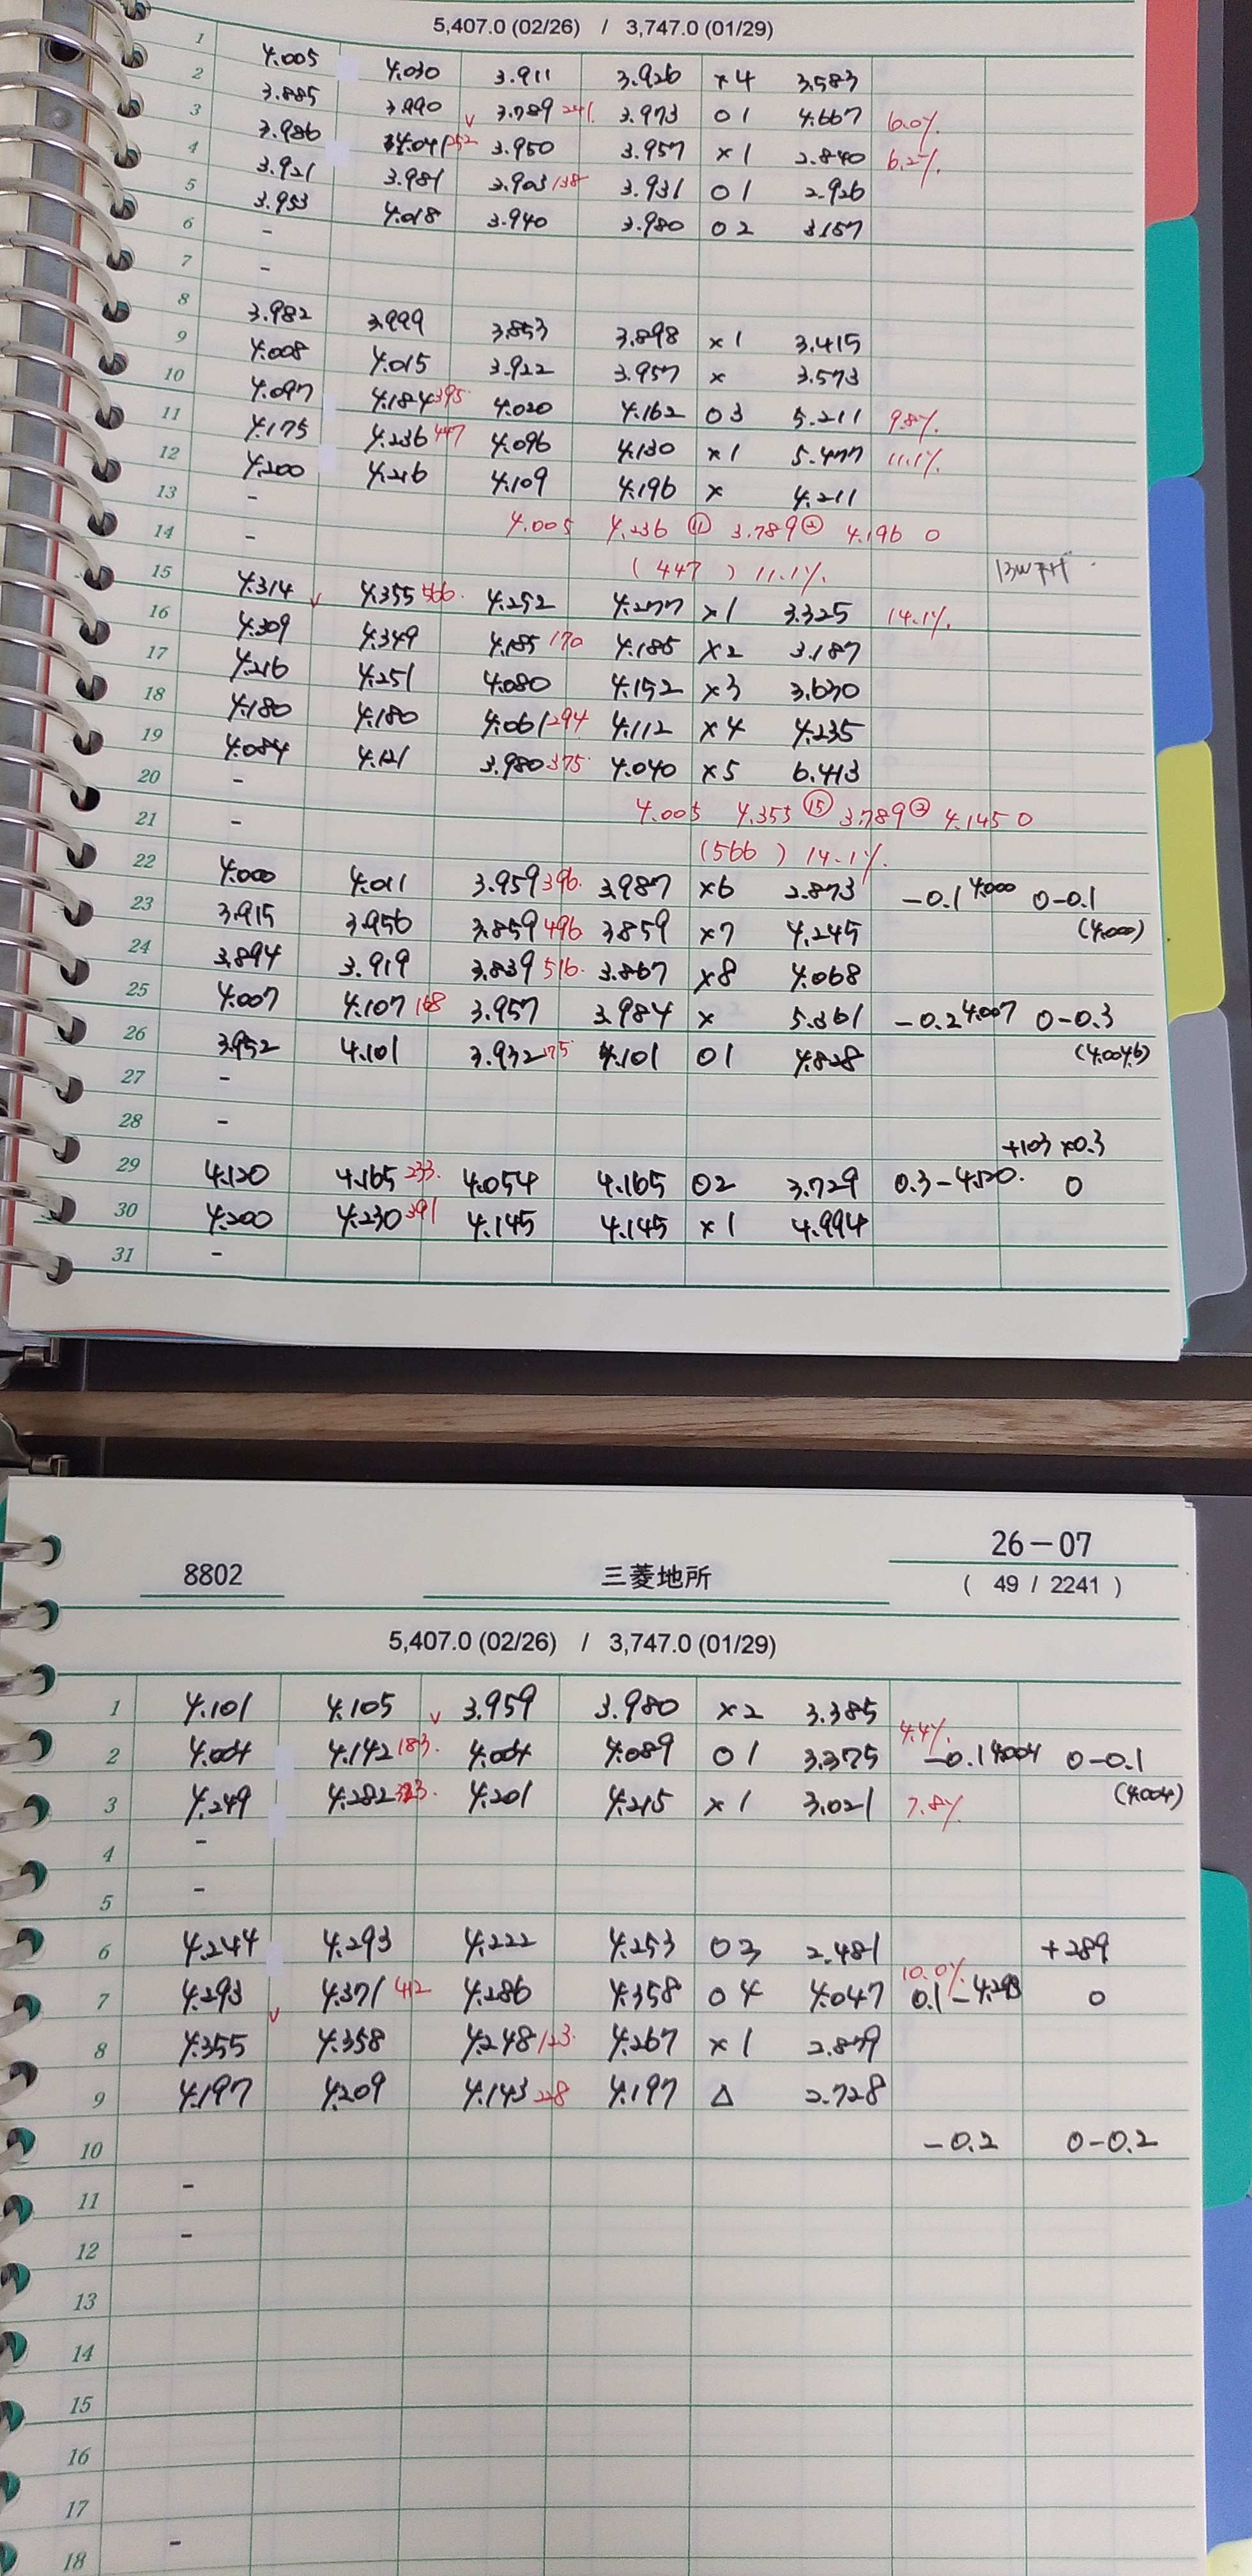 5,407.0 (02/26) / 3,747.0 (01/29)
1 4.005 4.030 3.911 3.926 ×4 3.583
2 3.885 3.990 3.789 241. 3.973 01 4.667 6.0%.
3 3.986 4.041 252 3.950 3.957 ×1 2.840 6.2%.
4 3.921 3.981 3.903 138 3.931 01 2.926
5 3.953 4.018 3.940 3.980 02 3.157
6 -
7 -
8 3.982 3.999 3.853 3.898 ×1 3.415
9 4.008 4.015 3.922 3.957 × 3.573
10 4.097 4.184 395. 4.020 4.162 03 5.211 9.8%.
11 4.175 4.236 447 4.096 4.130 ×1 5.477 11.1%
12 4.200 4.216 4.109 4.196 × 4.211
13 -
4.005 4.236 ⑪ 3.789 ② 4.196 0
14 -
(447) 11.1%.
15 4.314 4.355 566. 4.252 4.277 ×1 3.325 14.1%.
16 4.309 4.349 4.185 170 4.185 ×2 3.187
17 4.216 4.251 4.080 4.152 ×3 3.630
18 4.180 4.180 4.061 294 4.112 ×4 4.235
19 4.084 4.121 3.980 375. 4.040 ×5 6.413
20 -
4.005 4.355 ⑮ 3.789 ② 4.145 0
21 -
(566) 14.1%.
22 4.000 4.011 3.959 396. 3.987 ×6 2.873 -0.1 4.000 0-0.1
23 3.915 3.956 3.859 496 3.859 ×7 4.245 (4.000)
24 3.894 3.919 3.839 516. 3.867 ×8 4.068
25 4.007 4.107 168 3.957 3.984 × 5.361 -0.2 4.007 0-0.3
26 3.952 4.101 3.932 175. 4.101 01 4.828 (4.004.6)
27 -
28 -
+103 ×0.3
29 4.120 4.165 233. 4.054 4.165 02 3.729 0.3-4.120. 0
30 4.200 4.230 391 4.145 4.145 ×1 4.994
31 -
26-07
8802 三菱地所
( 49 / 2241 )
5,407.0 (02/26) / 3,747.0 (01/29)
1 4.101 4.105 3.959 3.980 ×2 3.385
4.4%.
2 4.004 4.142 183. 4.004 4.089 01 3.375 -0.1 4.004 0-0.1
3 4.249 4.282 323. 4.201 4.215 ×1 3.021 7.8% (4.004)
4 -
5 -
6 4.244 4.293 4.222 4.253 03 2.481 +289
10.0%.
7 4.293 4.371 412 4.286 4.358 04 4.047 0.1-4.293 0
8 4.355 4.358 4.248 123. 4.267 ×1 2.879
9 4.197 4.209 4.143 228 4.197 △ 2.728
10 -0.2 0-0.2
11 -
12 -
13
14
15
16
17
18 -